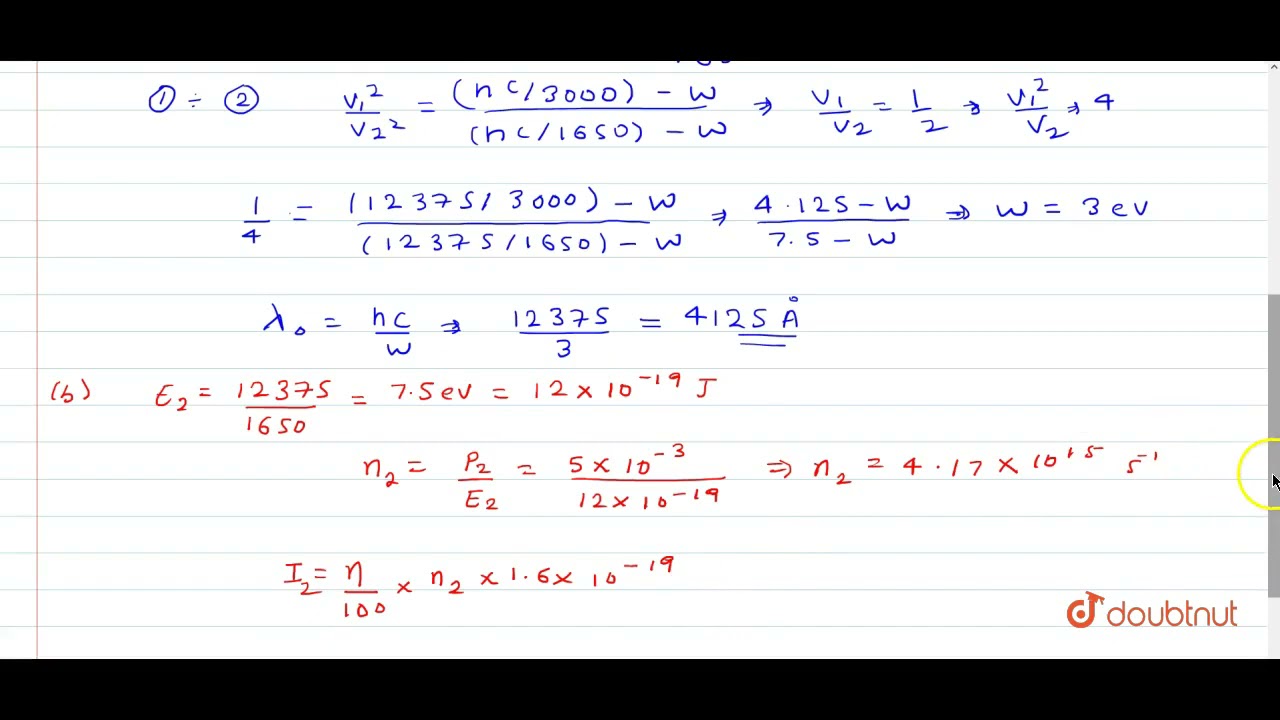 ① ÷ ② v₁²/v₂² = (hc/3000) - w / (hc/1650) - w ⇒ v₁/v₂ = 1/2 ⇒ v₁²/v₂ ⇒ 4
1/4 = (12375/3000) - w / (12375/1650) - w ⇒ 4.125 - w / 7.5 - w ⇒ w = 3 ev
λ₀ = hc/w ⇒ 12375/3 = 4125 Å
(b) E₂ = 12375/1650 = 7.5 ev = 12 × 10⁻¹⁹ J
n₂ = P₂/E₂ = 5 × 10⁻³ / 12 × 10⁻¹⁹ ⇒ n₂ = 4.17 × 10¹⁵ s⁻¹
I₂ = η/100 × n₂ × 1.6 × 10⁻¹⁹
doubtnut